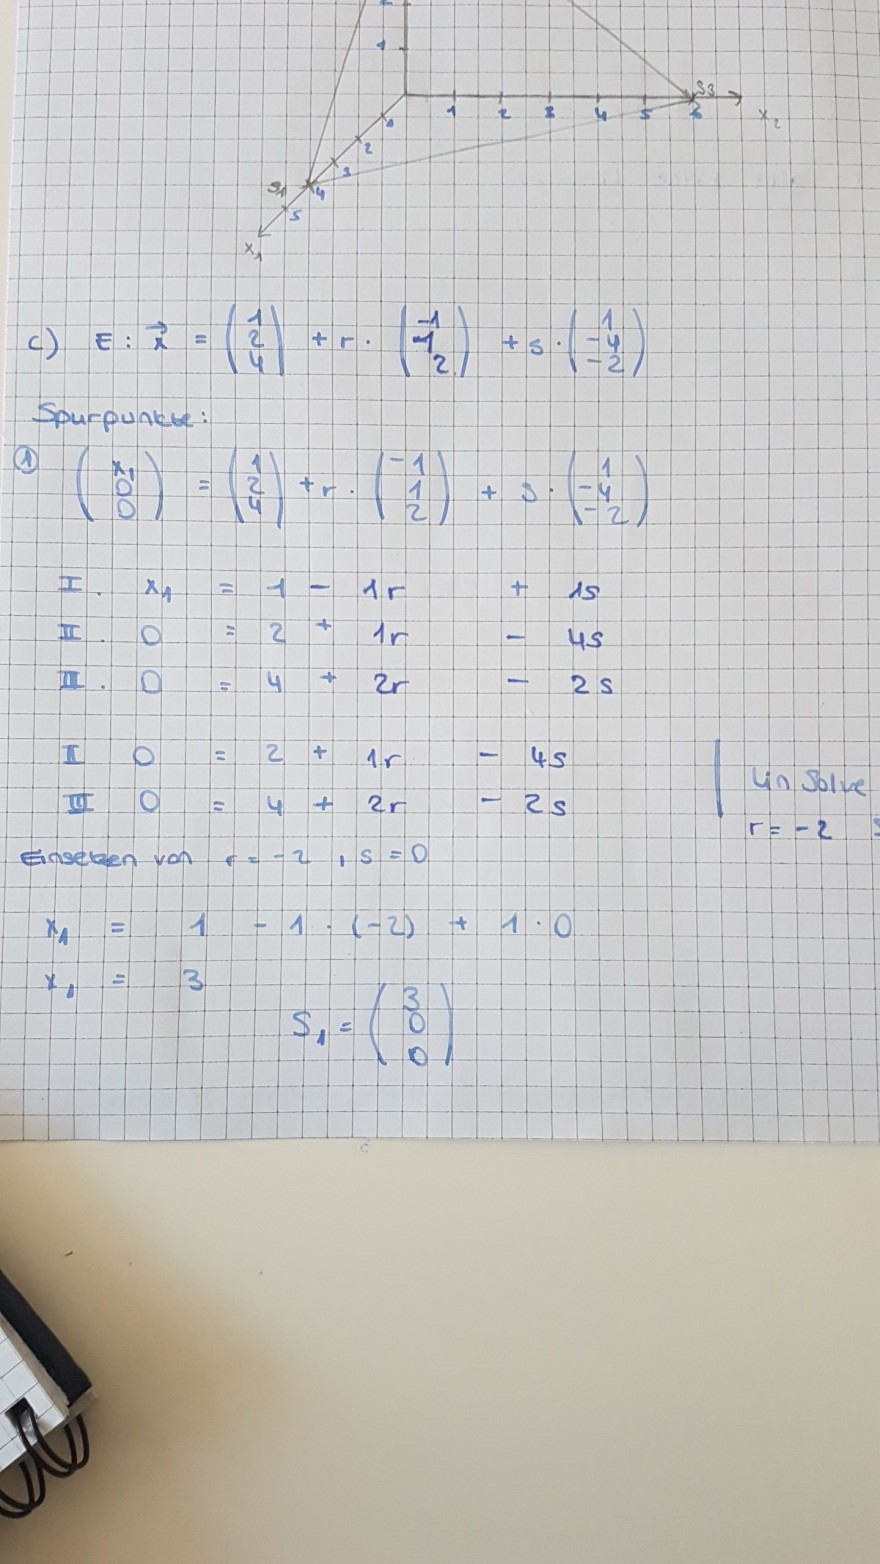 1
S3
1 2 3 4 5 6 x₂
1
2
3
S1 4
5
x₁
c) E : x⃗ = (1 2 4) + r · (-1 1 2) + s · (1 -4 -2)
Spurpunkte:
① (x₁ 0 0) = (1 2 4) + r · (-1 1 2) + s · (1 -4 -2)
I. x₁ = 1 - 1r + 1s
II. 0 = 2 + 1r - 4s
III. 0 = 4 + 2r - 2s
II 0 = 2 + 1r - 4s
III 0 = 4 + 2r - 2s | lin Solve
r = -2
Einsetzen von r = -2 , s = 0
x₁ = 1 - 1 · (-2) + 1 · 0
x₁ = 3
S₁ = (3 0 0)